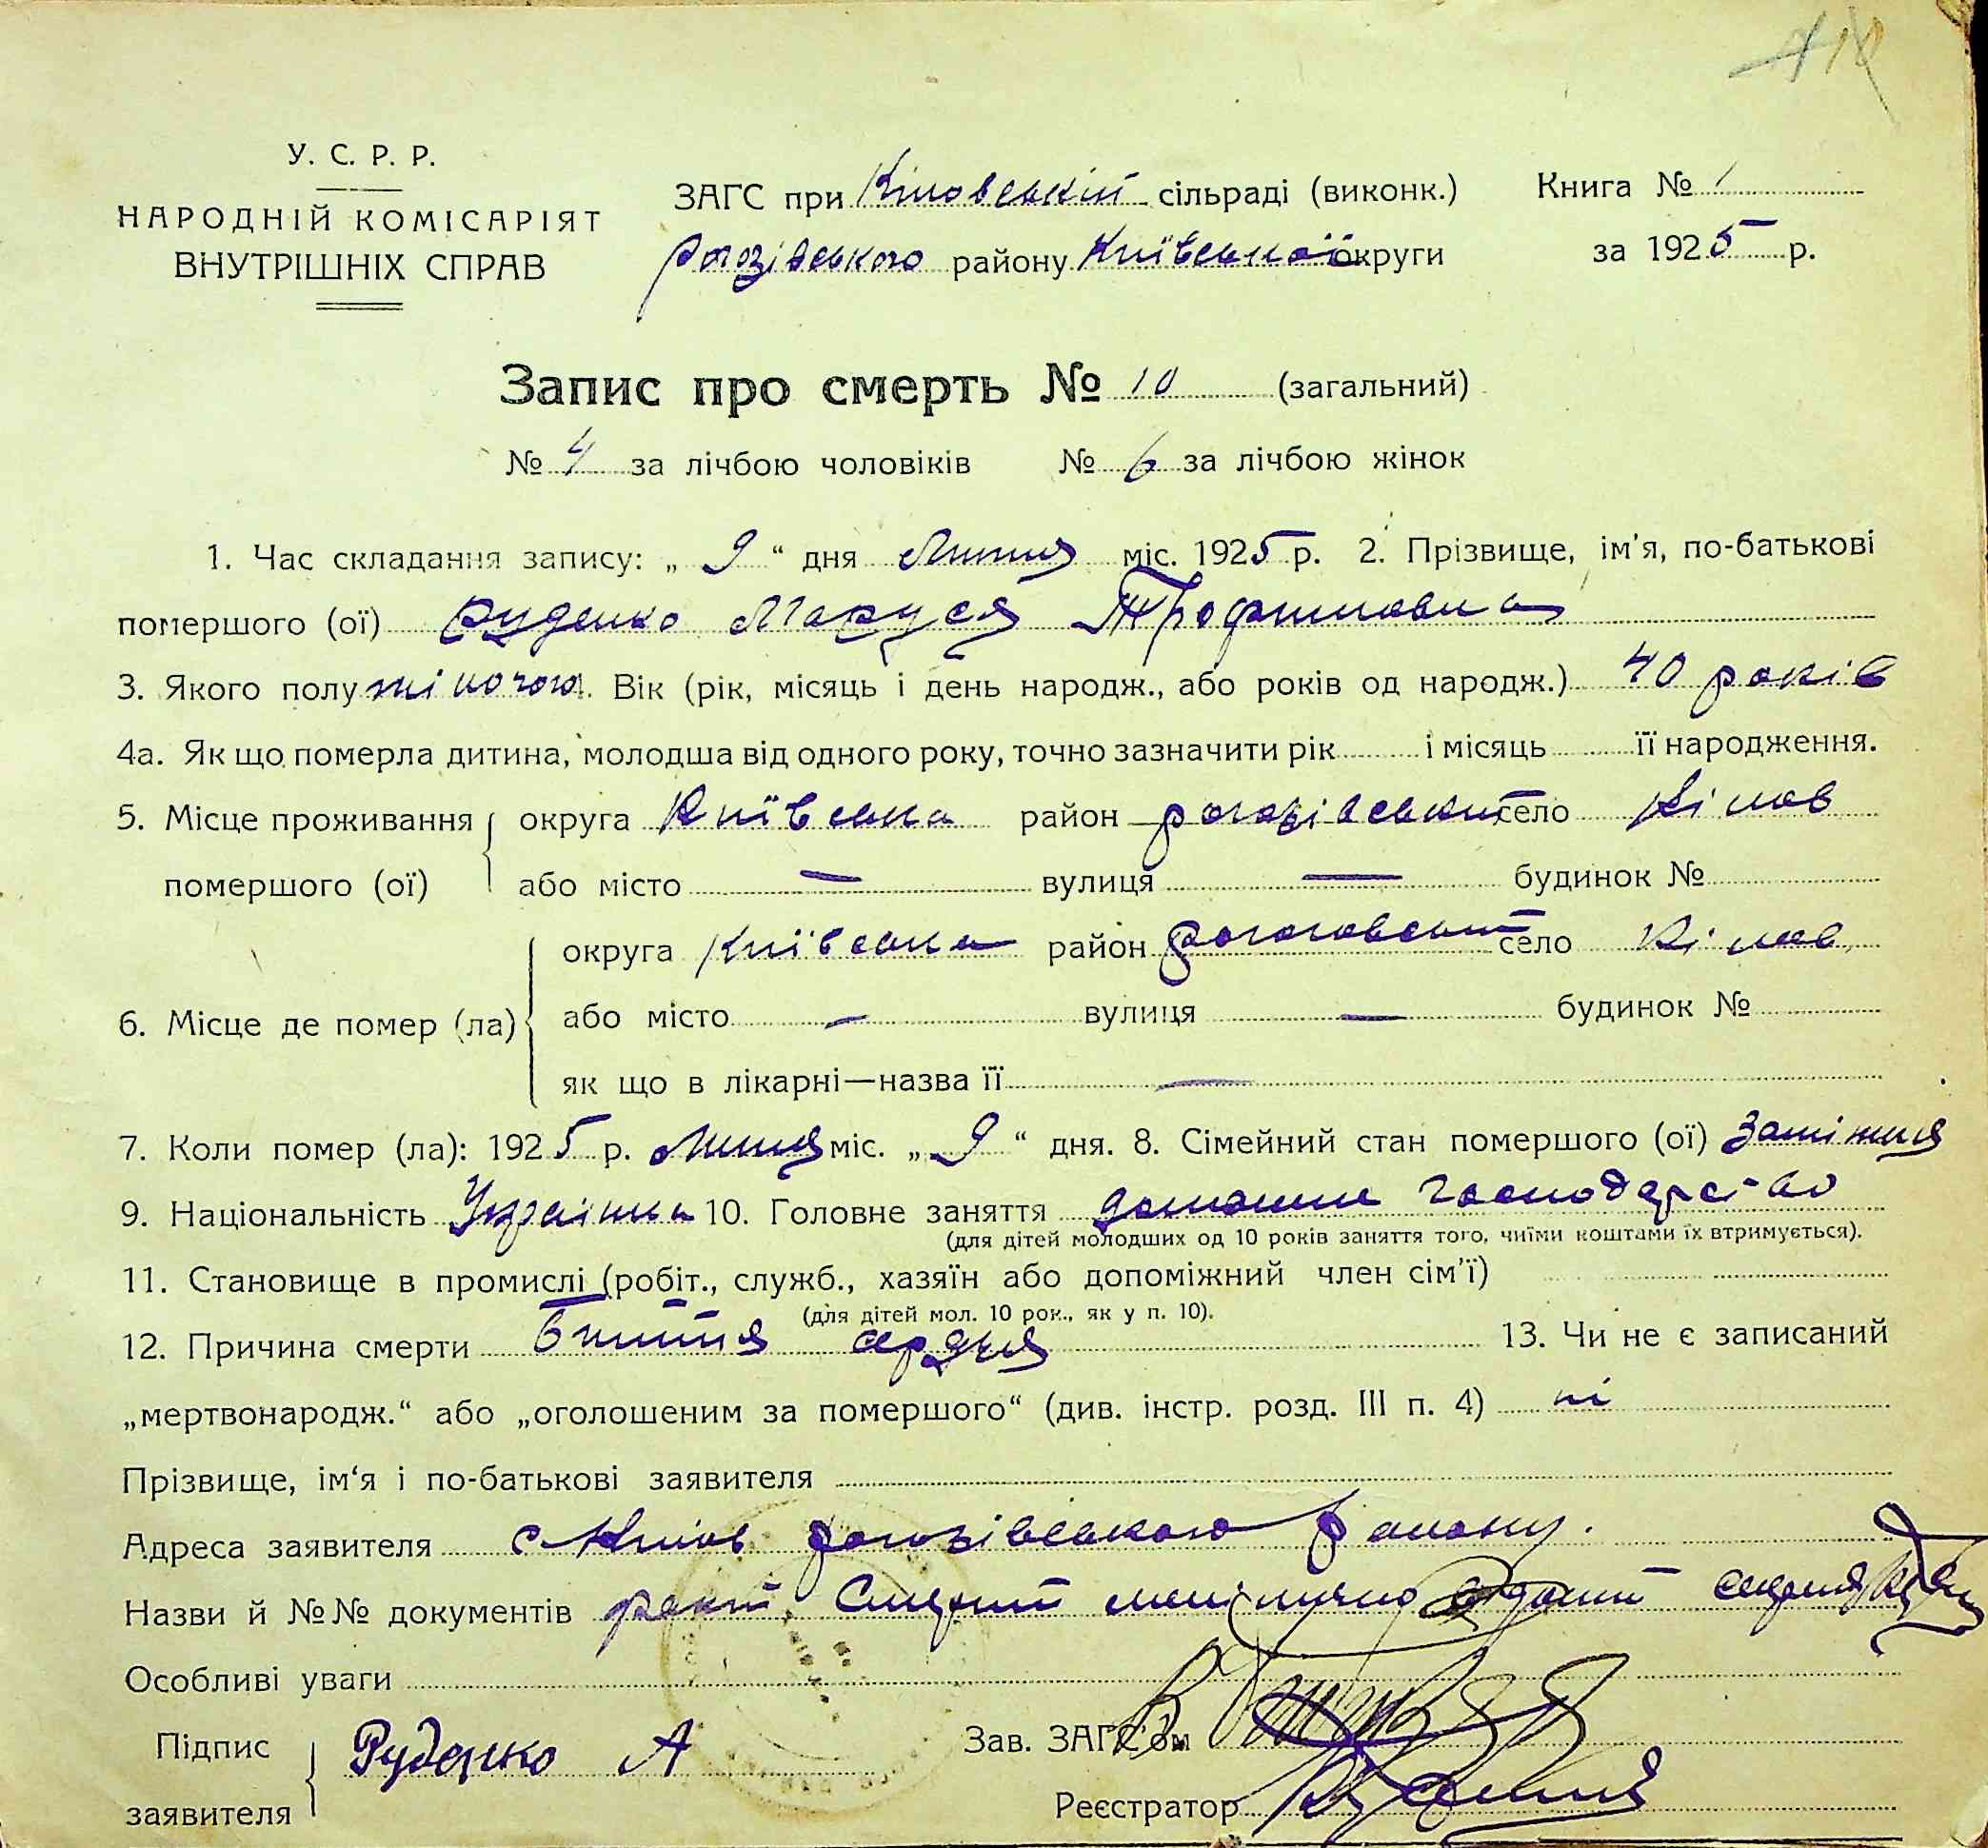 У. С. Р. Р.
НАРОДНІЙ КОМІСАРІЯТ
ВНУТРІШНІХ СПРАВ
ЗАГС при Кіловській сільраді (виконк.)
Рогозівського району Київської округи
Книга № 1
за 1925 р.
Запис про смерть № 10 (загальний)
№ 4 за лічбою чоловіків № 6 за лічбою жінок
1. Час складання запису: „ 9 “ дня Липня міс. 1925 р. 2. Прізвище, ім'я, по-батькові
помершого (ої) Руденко Маруся Трофимовна
3. Якого полу жіночого. Вік (рік, місяць і день народж., або років од народж.) 40 років
4а. Як що померла дитина, молодша від одного року, точно зазначити рік і місяць її народження.
5. Місце проживання помершого (ої) округа Київська район рогозівський село Кілов
або місто — вулиця — будинок №
6. Місце де помер (ла) округа Київська район село Кілов
або місто — вулиця — будинок №
як що в лікарні—назва її —
7. Коли помер (ла): 1925 р. Липня міс. „ 9 “ дня. 8. Сімейний стан помершого (ої) Заміжня
9. Національність Українка 10. Головне заняття домашнє господарство
(для дітей молодших од 10 років заняття того, чиїми коштами їх втримується).
11. Становище в промислі (робіт., служб., хазяїн або допоміжний член сім'ї)
(для дітей мол. 10 рок., як у п. 10).
12. Причина смерти сердця 13. Чи не є записаний
„мертвонародж.“ або „оголошеним за помершого“ (див. інстр. розд. III п. 4) ні
Прізвище, ім‘я і по-батькові заявителя
Адреса заявителя с Кілов рогозівського району.
Назви й №№ документів
Особливі уваги
Підпис заявителя Руденко А
Зав. ЗАГС'ом
Реєстратор